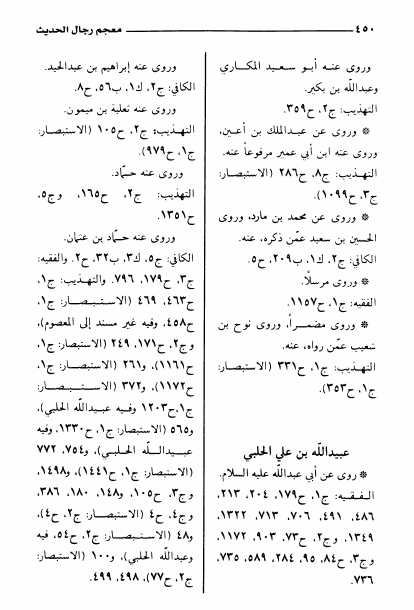 ٤٥٠ معجم رجال الحديث
وروى عنه أبو سعيد المكاري
وعبدالله بن بكير.
التهذيب: ج٢، ح٣٥٩.
* وروى عن عبدالملك بن أعين،
وروى عنه ابن أبي عمير مرفوعاً عنه.
التهذيب: ج٨، ح٢٨٦ (الاستبصار:
ج٣، ح١٠٩٩).
* وروى عن محمد بن مارد، وروى
الحسين بن سعيد عمّن ذكره، عنه.
الكافي: ج٢، ك١، ب٢٠٩، ح٥.
* وروى مرسلًا.
الفقيه: ج١، ح١١٥٧.
* وروى مضمراً، وروى نوح بن
شعيب عمّن رواه، عنه.
التهذيب: ج١، ح٣٣١ (الاستبصار:
ج١، ح٣٥٣).
عبيدالله بن علي الحلبي
* روى عن أبي عبدالله عليه السلام.
الفقيه: ج١، ح١٧٩، ٢٠٤، ٢١٣،
٤٨٦، ٤٩١، ٧٠٦، ٧١٣، ١٣٢٢،
١٣٤٩، وج٢، ح٧٣، ٩٠٣، ١١٧٢،
وج٣، ح٨٤، ٩٥، ٢٨٤، ٥٨٩، ٧٣٥،
٧٣٦.
وروى عنه إبراهيم بن عبدالحميد.
الكافي: ج٢، ك١، ب٥٦، ح٨.
وروى عنه ثعلبة بن ميمون.
التهذيب: ج٢، ح١٠٥ (الاستبصار:
ج١، ح٩٧٩).
وروى عنه حمّاد.
التهذيب: ج٢، ح١٦٥، وج٥،
ح١٣٥١.
وروى عنه حمّاد بن عثمان.
الكافي: ج٥، ك٣، ب٣٢، ح٢. والفقيه:
ج٣، ح١٧٩، ٧٩٦. والتهذيب: ج١،
ح٤٦٣، ٤٦٩ (الاستبصار: ج١،
ح٤٥٨، وفيه غير مسند إلى المعصوم)،
وج٢، ح١٧١، ٢٤٩ (الاستبصار: ج١،
ح١١٦١)، و٢٦١ (الاستبصار: ج١،
ح١١٧٢)، و٣٧٢ (الاستبصار:
ج١،ح١٢٠٣ وفيه عبيدالله الحلبي)،
و٥٦٥ (الاستبصار: ج١، ح١٣٣٠، وفيه
عبيدالله الحلبي)، و٧٥٤، ٧٧٢
(الاستبصار: ج١، ح١٤٤١)، و١٤٩٨،
وج٣، ح١٠٥، و١٤٨، ١٨٠، ٣٨٦،
وج٤، ح٤ (الاستبصار: ج٢، ح٤)،
و٤٨ (الاستبصار: ج٢، ح٥٤، فيه
وعبدالله الحلبي)، و١٠٠ (الاستبصار:
ج٢، ح٧٧)، ٤٩٨، ٤٩٩.